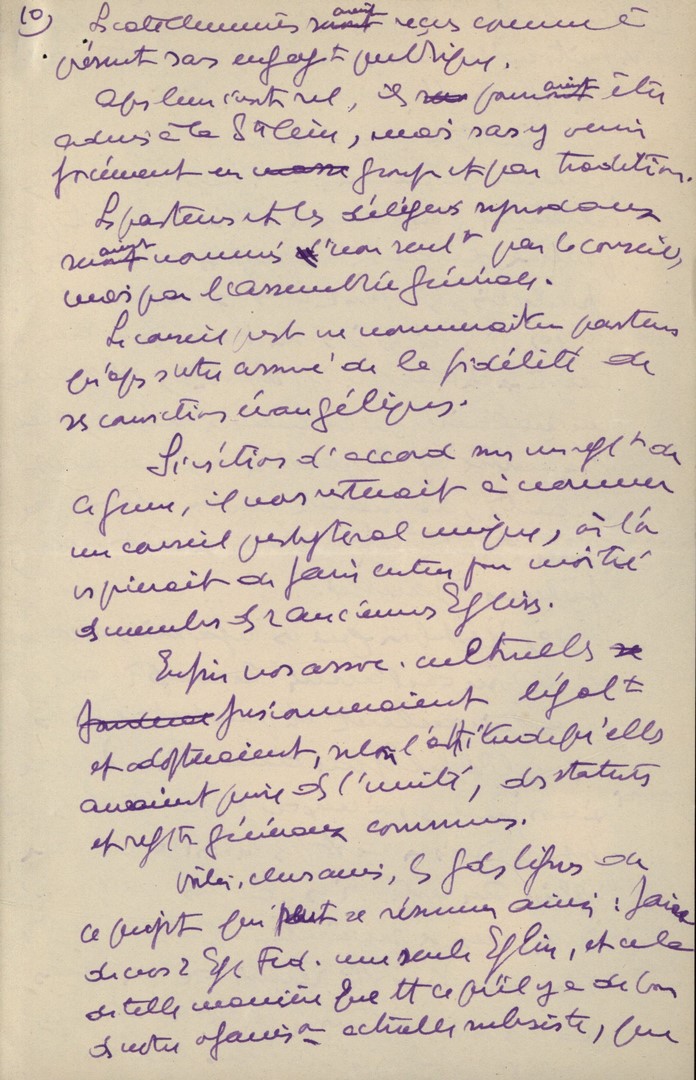 10)
Les catéchumènes seraient reçus comme à
présent sans engagt publique.
Aps leur instr rel, ils pourraient être
admis à la Ste Cène, mais sans y venir
forcément en masse groupe et par tradition.
Les pasteurs et les délégués synodaux
seraient nommés non seult par le conseil,
mais par l'assemblée générale.
Le conseil presb ne nommerait un pasteur
qu'aps s'être assuré de la fidélité de
ses convictions évangéliques.
Si ns étions d'accord sur un reglt de
ce genre, il nous resterait à nommer
un conseil presbytéral unique, où l'on
de faire entrer par moitié
des membres des 2 anciennes Eglises.
Enfin nos assoc. cultuelles se
fusionneraient légalt
et adopteraient, selon l'attitude qu'elles
auraient prise ds l'unité, des statuts
et reglts généraux communs.
Voilà, chers amis, les gdes lignes de
ce projet qui peut se résumer ainsi : faire
de nos 2 Egl. Ev. une seule Eglise, et cela
de telle manière que tt ce qu'il y a de bon
ds notre organison actuelle subsiste, que